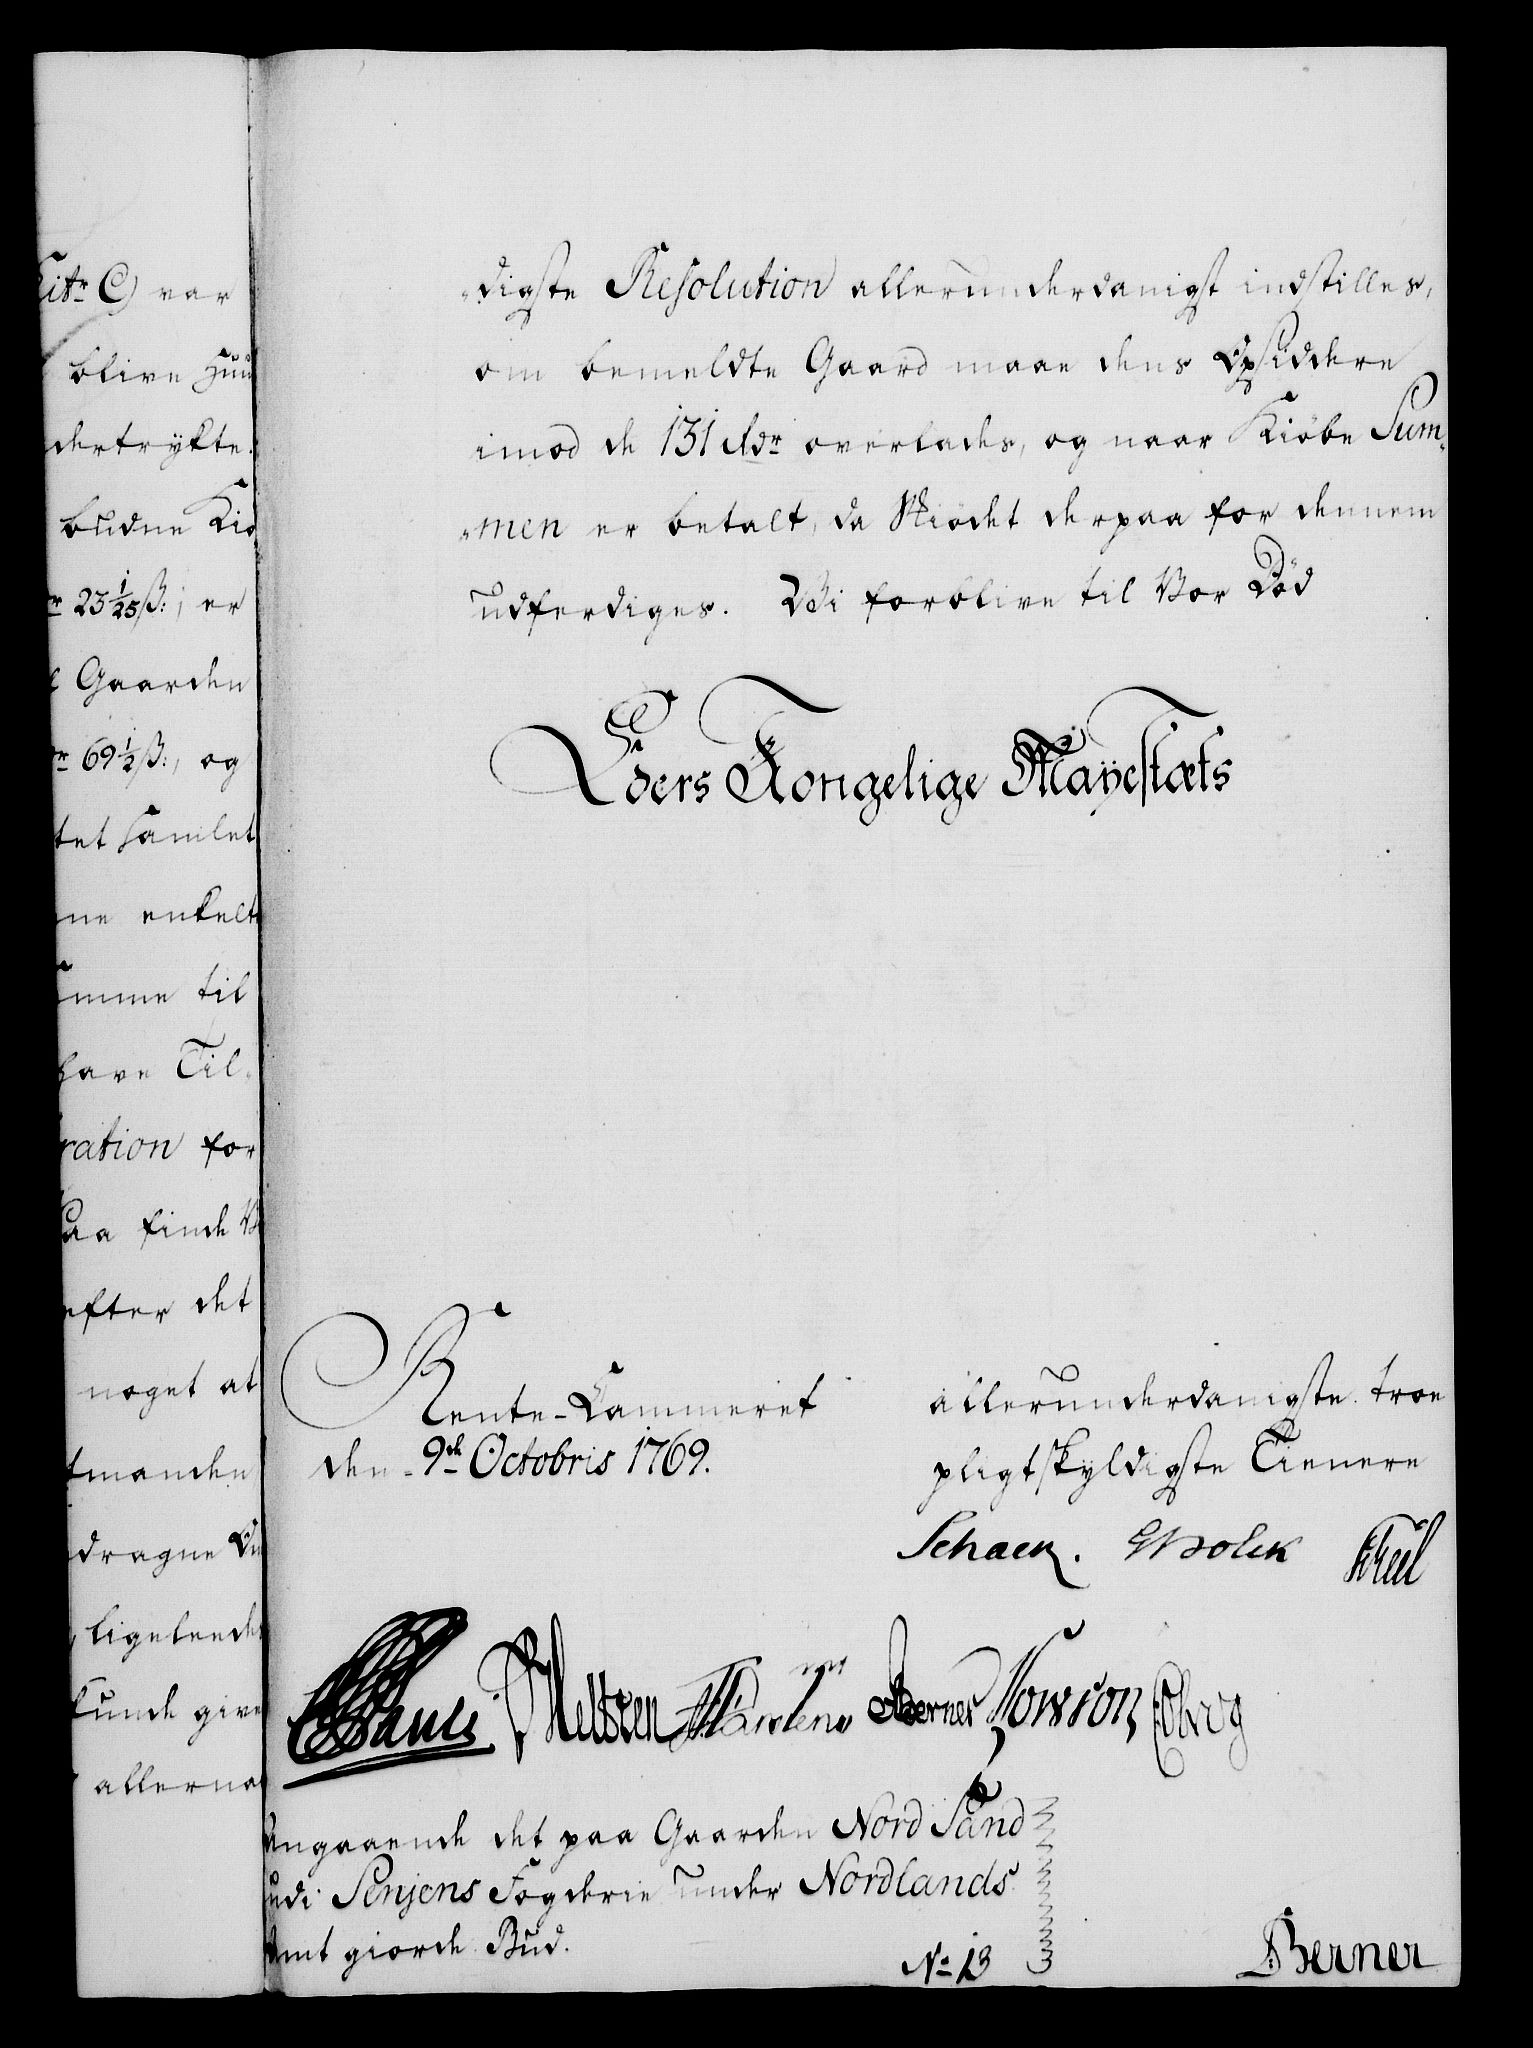 Litr C) var
blive Huu
dertrykte.
budne Kiø
23 1/25 ß:, er
Gaarden
69 1/2 ß:, og
tet samlet
ne enkelt
imme til
have Til-
ration for
saa finde V
efter det
noget at
tmanden
dragne
ligeleedes
kunde give
allerna
digste Resolution allerunderdanigst indstilles,
om bemeldte Gaard maae dens Opsiddere
imod de 131 Rdr overlades, og naar Kiöbe Sum-
men er betalt, da Skiödet derpaa for dennem
udferdiges. Vi forblive til Vor Död
Eders Kongelige Mayestæts
Rente-Cammeret
den 9de Octobris 1769.
allerunderdanigste troe
pligtskyldigste Tienere
Schack. Juel
Pauli Berner Kowson
Angaaende det paa Gaarden Nord Sand
udi Senjens Fogderie under Nordlands
Amt giorde Bud.
No 13
Berner